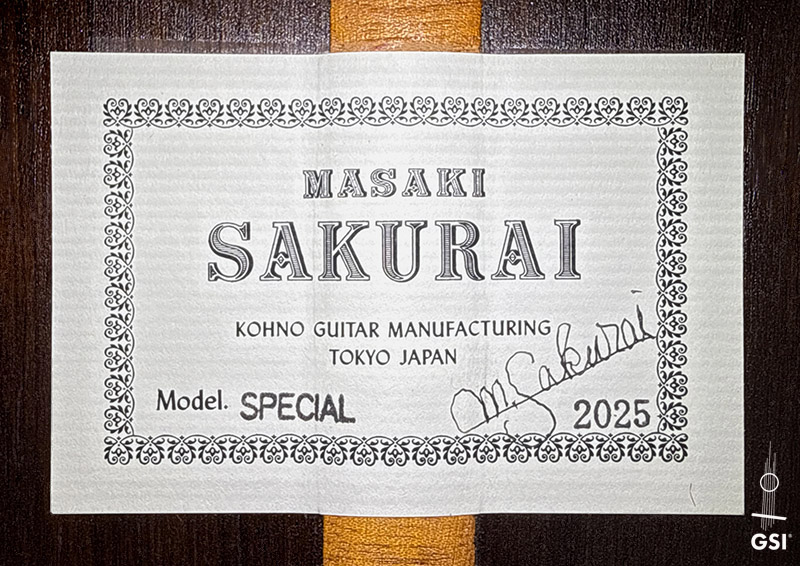 MASAKI
SAKURAI
KOHNO GUITAR MANUFACTURING
TOKYO JAPAN
Model. SPECIAL
M. Sakurai
2025
GSI®